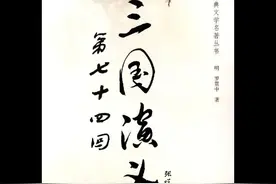 典文学名著丛书
明 罗贯中 著
三国演义
第七十四回